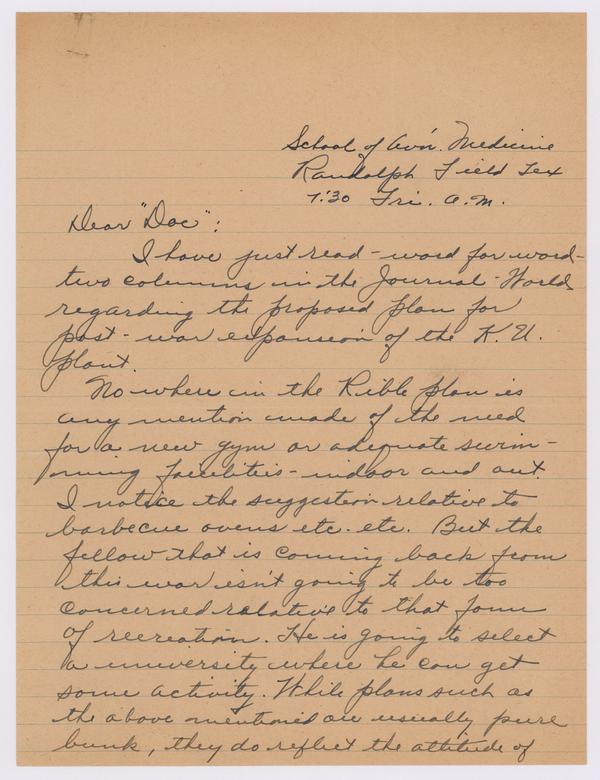 School of Av'n. Medicine
Randolph Field Tex
7:30 Fri. A.M.
Dear "Doc":
I have just read - word for word -
two columns in the Journal-World
regarding the proposed plan for
post-war expansion of the K.U.
plant.
No where in the Rible plan is
any mention made of the need
for a new gym or adequate swim-
ming facilities - indoor and out.
I notice the suggestion relative to
barbecue ovens etc. etc. But the
fellow that is coming back from
this war isn't going to be too
concerned relative to that form
of recreation. He is going to select
a university where he can get
some activity. While plans such as
the above mentioned are usually pure
bunk, they do reflect the attitude of